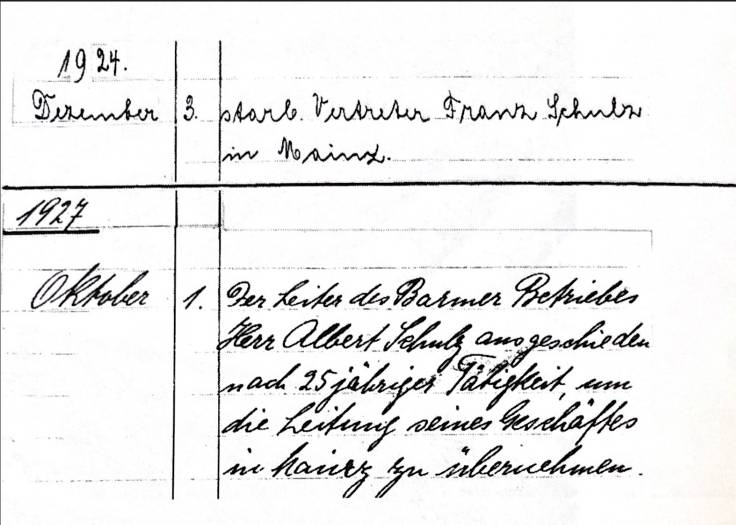 1924.
Dezember 3. starb. Vertreter Franz Schulz
in Mainz.
1927
Oktober 1. Der Leiter des Barmer Betriebes
Herr Albert Schulz ausgeschieden
nach 25jähriger Tätigkeit, um
die Leitung seines Geschäftes
in Mainz zu übernehmen.